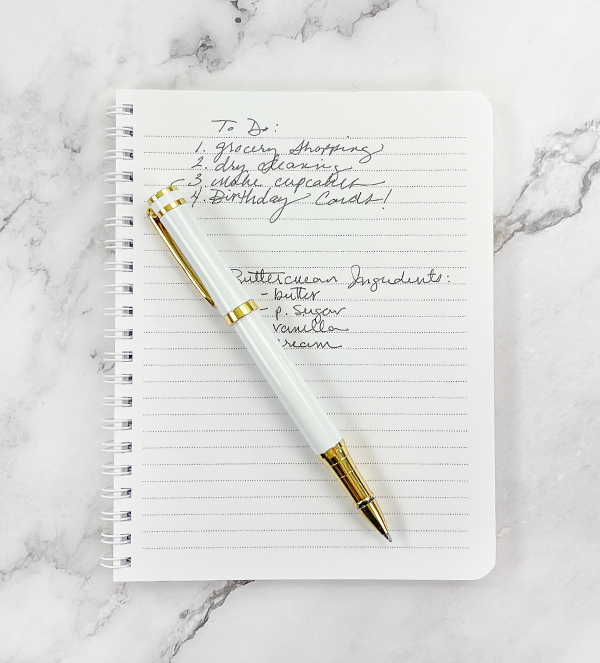 To Do:
1. grocery shopping
2. dry cleaning
3. make cupcakes
4. Birthday Cards!
Buttercream Ingredients:
- butter
- p. sugar
vanilla
cream